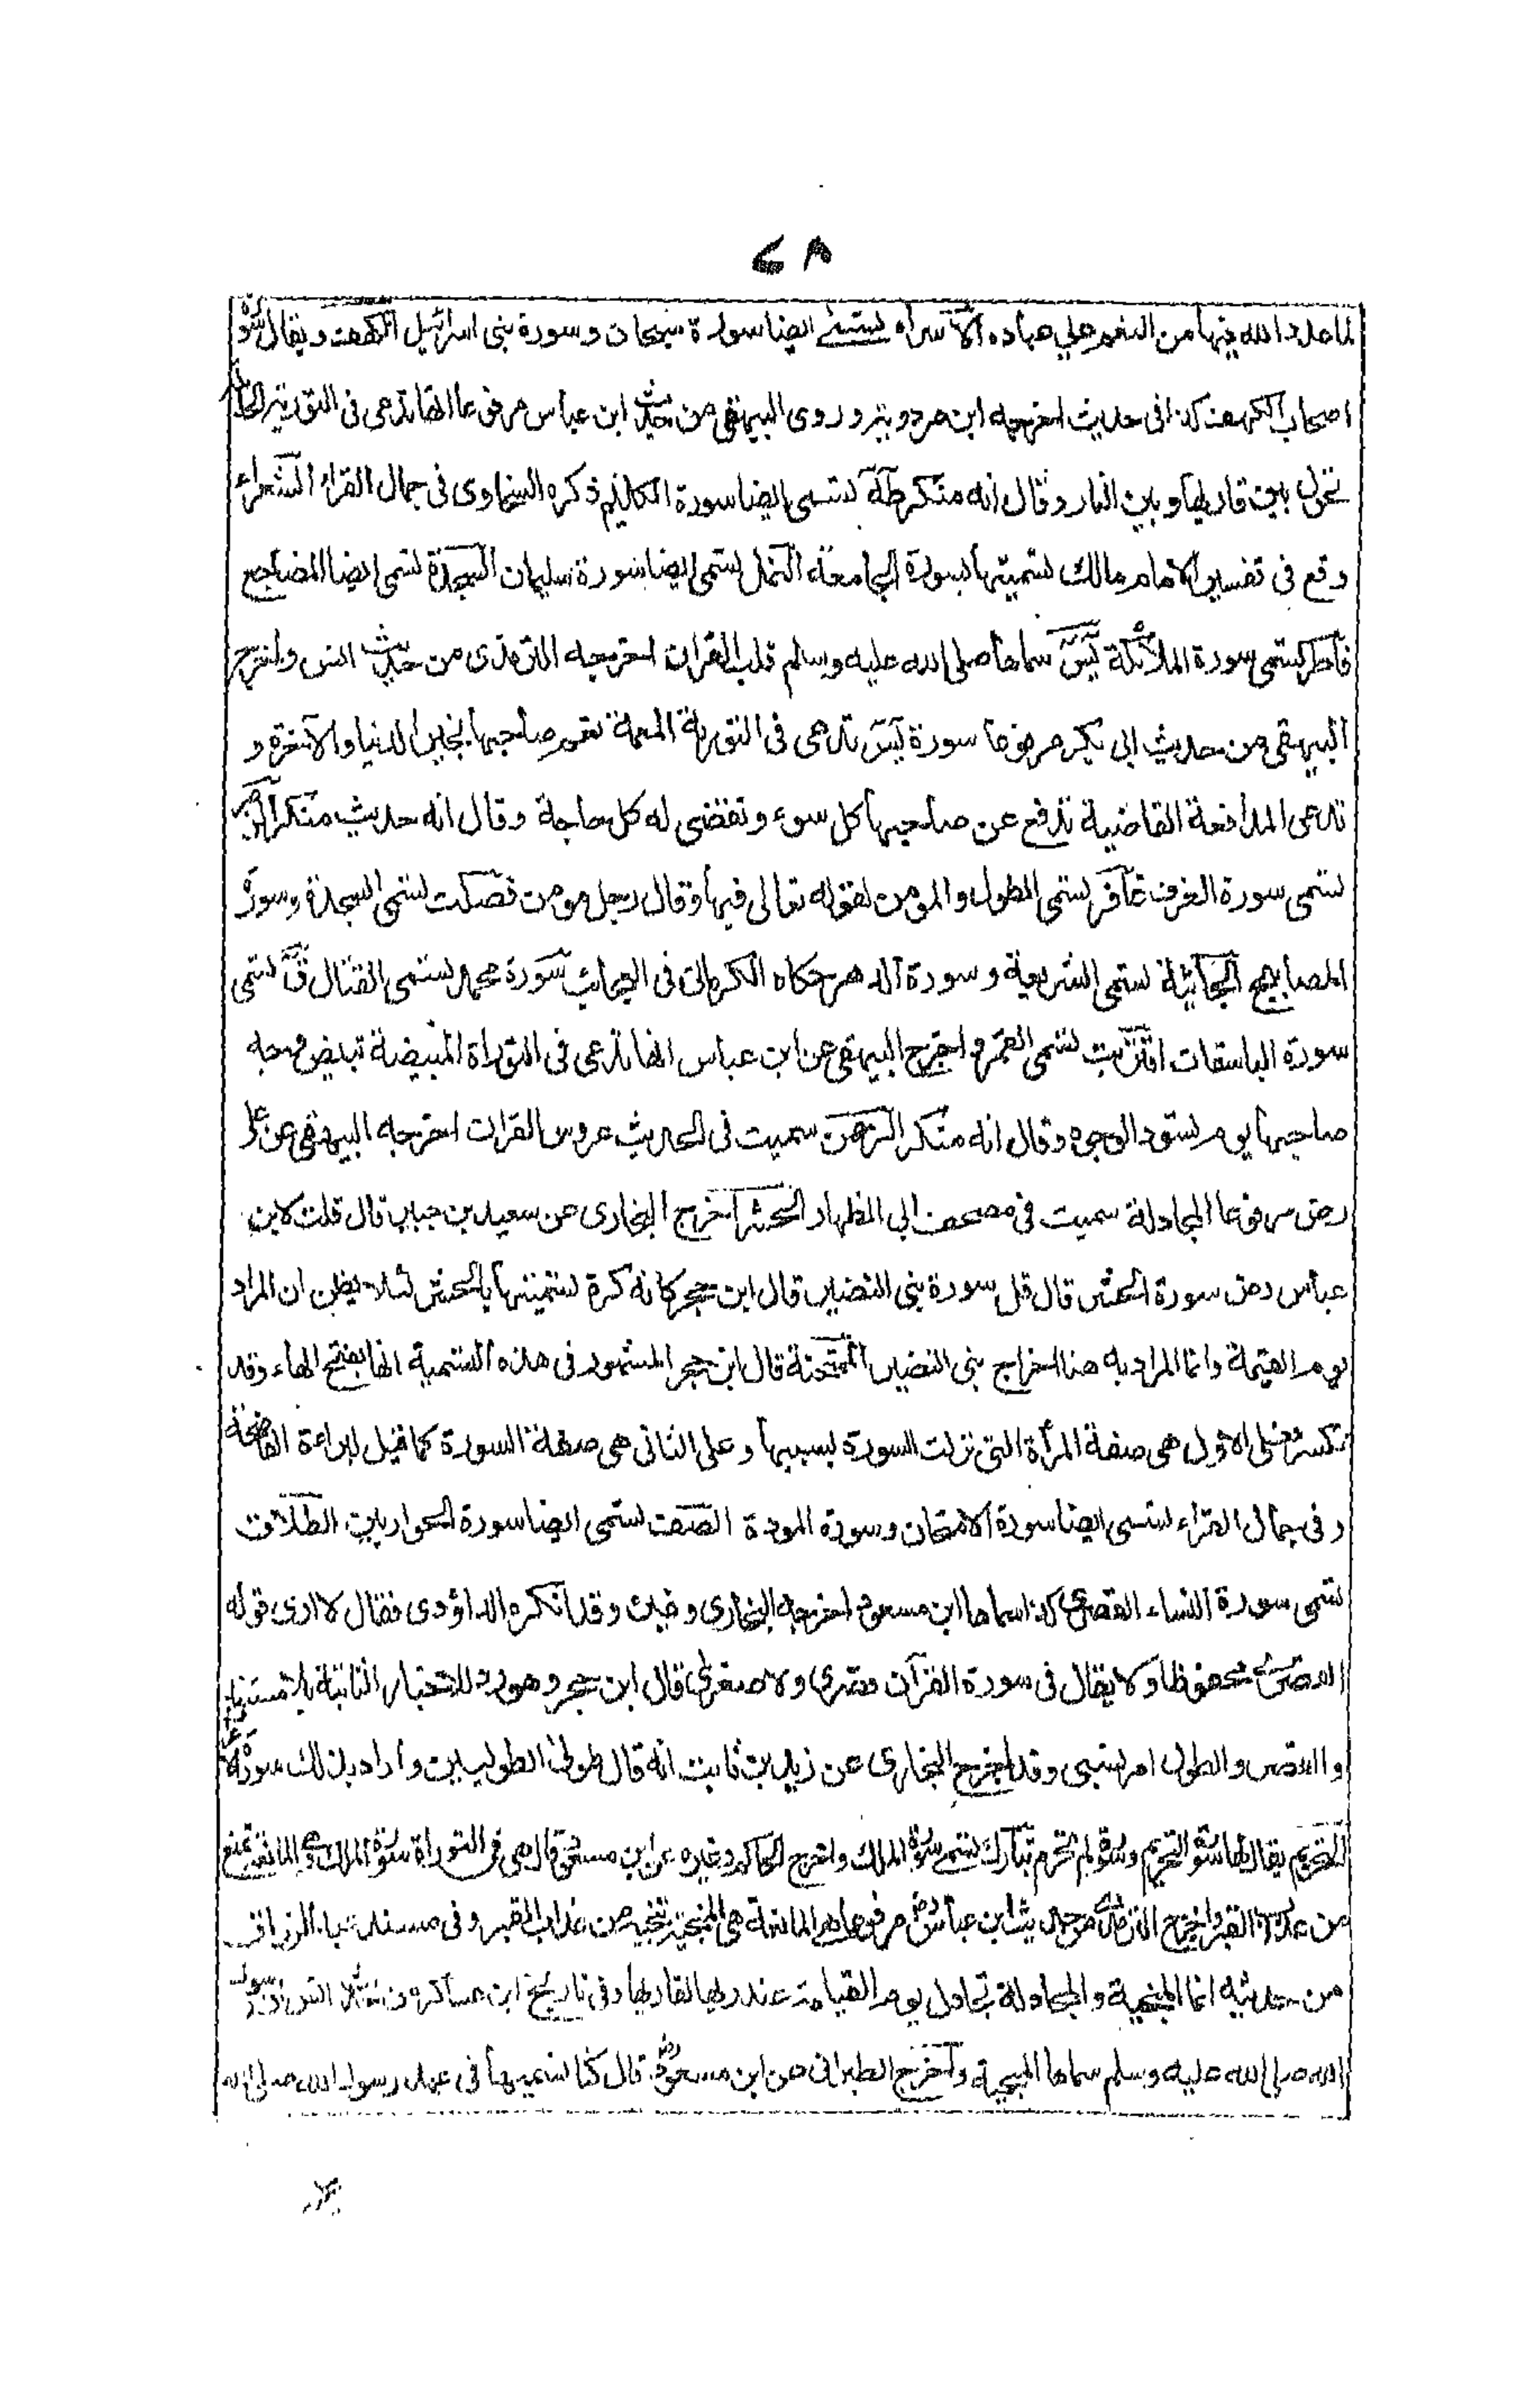 ٧٨
لما عدد الله فيها من النعم على عباده الاسراء تسمى ايضا سورة سبحان وسورة بنى اسرائيل الكهف ويقال سورة
اصحاب الكهف كذا فى حديث اخرجه ابن مردويه وروى البيهقى من حديث ابن عباس مرفوعا انها تدعى فى التوريه الحائلة
تحول بين قاريها وبين النار وقال انه منكر طه تسمى ايضا سورة الكليم ذكره السخاوى فى جمال القراء الشعراء
وقع فى تفسير الامام مالك تسميتها بسورة الجامعة النمل تسمى ايضا سورة سليمان السجدة تسمى ايضا المضاجع
فاطر تسمى سورة الملائكة يس سماها صلى الله عليه وسلم قلب القران اخرجه الترمذى من حديث انس واخرج
البيهقى من حديث ابى بكر مرفوعا سورة يس تدعى فى التورية المعمة تعم صاحبها بخير الدنيا والاخرة و
تدعى المدافعة القاضية تدفع عن صاحبها كل سوء وتقضى له كل حاجة وقال انه حديث منكر الزمر
تسمى سورة الغرف غافر تسمى الطول والمومن لقوله تعالى فيها وقال رجل مومن فصلت تسمى السجدة وسورة
المصابيح الجاثية تسمى الشريعة وسورة الدهر حكاه الكرمانى فى العجائب سورة محمد تسمى القتال ق تسمى
سورة الباسقات اقتربت تسمى القمر واخرج البيهقى عن ابن عباس انها تدعى فى التوراة المبيضة تبيض وجه
صاحبها يوم تسود الوجوه وقال انه منكر الرحمن سميت فى الحديث عروس القران اخرجه البيهقى عن على
رض مرفوعا المجادلة سميت فى مصحف ابى الظهار الحشر اخرج البخارى عن سعيد بن جبير قال قلت لابن
عباس رض سورة الحشر قال قل سورة بنى النضير قال ابن حجر كانه كره تسميتها بالحشر لئلا يظن ان المراد
يوم القيمة وانما المراد به هنا اخراج بنى النضير الممتحنة قال ابن حجر المشهور فى هذه التسمية انها بفتح الحاء وقد
تكسر فعلى الاول هى صفة المرأة التى نزلت السورة بسببها وعلى الثانى هى صفة السورة كما قيل لبراءة الفاضحة
وفى جمال القراء تسمى ايضا سورة الامتحان وسورة المودة الصف تسمى ايضا سورة الحواريين الطلاق
تسمى سورة النساء القصرى كذا سماها ابن مسعود اخرجه البخارى وغيره وقد انكره الداؤدى فقال لا ارى قوله
القصرى محفوظا ولا يقال فى سورة القرآن قصرى ولا صغرى قال ابن حجر وهو رد للاخبار الثابتة بلا مستند
والقصر والطول امر نسبى وقد اخرج البخارى عن زيد بن ثابت انه قال طولى الطوليين واراد بذلك سورة الاعراف
التحريم يقال لها سورة المتحرم وسورة لم تحرم تبارك تسمى سورة الملك واخرج الحاكم وغيره عن ابن مسعود قال هى فى التوراة سورة الملك وهى المانعة تمنع
من عذاب القبر واخرج الترمذى من حديث ابن عباس رض مرفوعا هى المانعة هى المنجية تنجيه من عذاب القبر وفى مسند عبد الرزاق
من حديثه انها المنجية والمجادلة تجادل يوم القيامة عند ربها لقاريها وفى تاريخ ابن عساكر من حديث انس ان رسول
الله صلى الله عليه وسلم سماها المنجية واخرج الطبرانى عن ابن مسعود رض قال كنا نسميها فى عهد رسول الله صلى الله